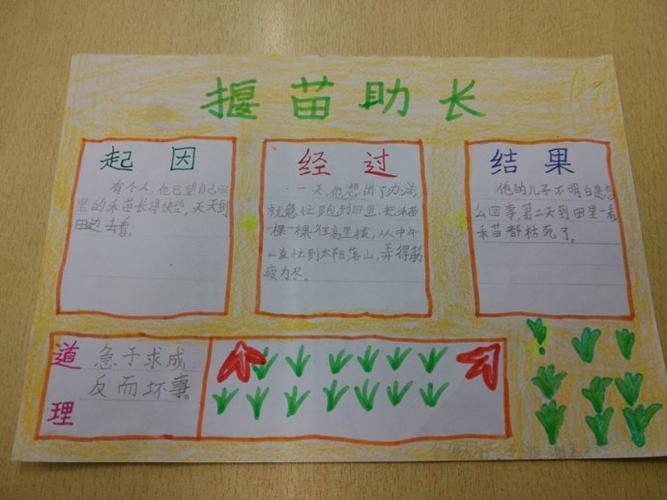 揠苗助长
起因
有个人,他巴望自己田
里的禾苗长得快些,天天到
田边去看。
经过
一天,他想出了办法,
就急忙跑到田里,把禾苗
一棵一棵往高里拔,从中午
一直忙到太阳落山,弄得筋
疲力尽。
结果
他的儿子不明白是怎
么回事,第二天到田里一看
禾苗都枯死了。
道理
急于求成
反而坏事。